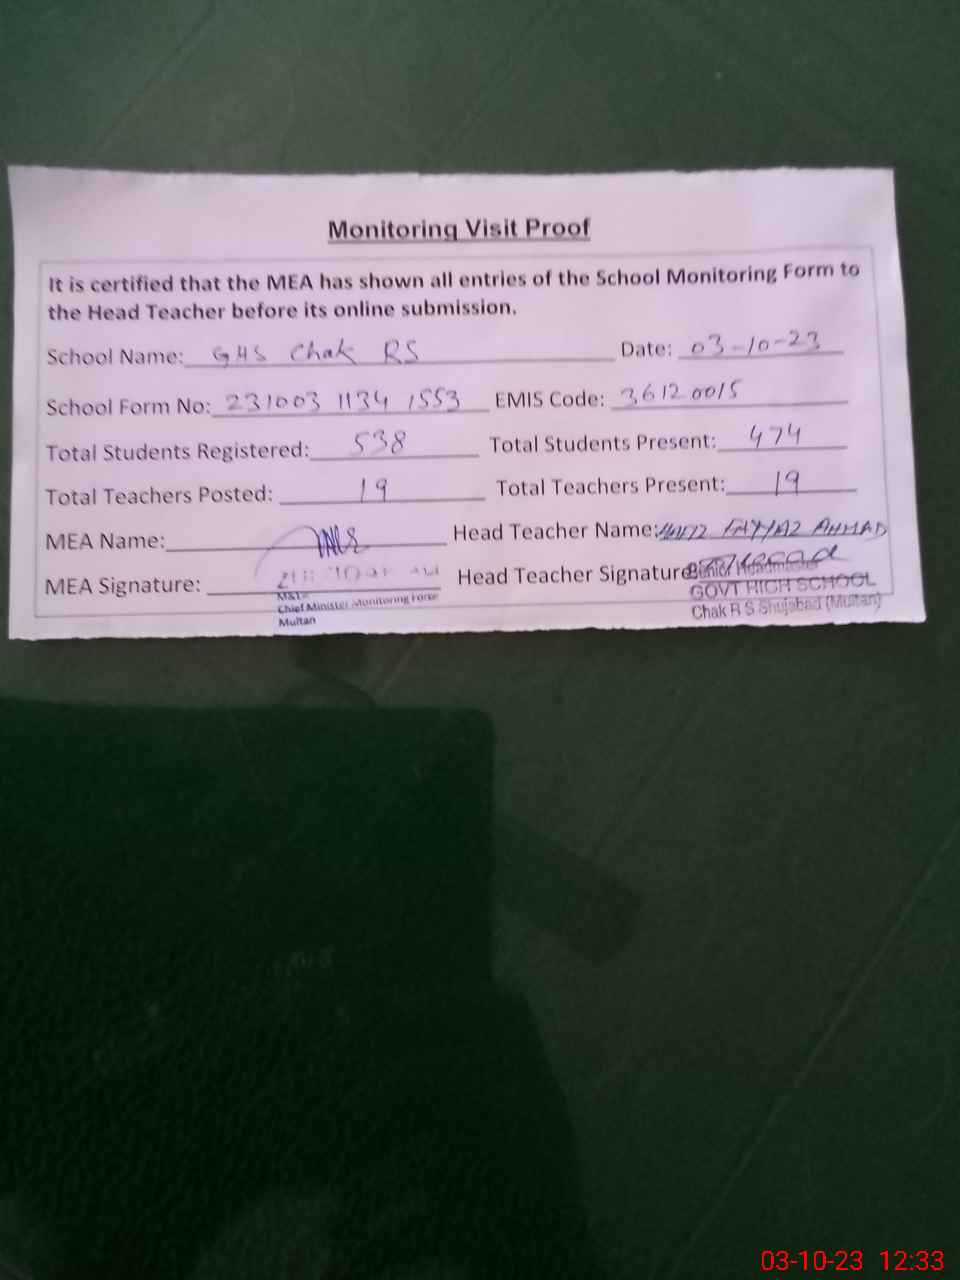 Monitoring Visit Proof
It is certified that the MEA has shown all entries of the School Monitoring Form to
the Head Teacher before its online submission.
School Name: GHS Chak RS Date: 03-10-23
School Form No: 231003 1134 1553 EMIS Code: 36120015
Total Students Registered: 538 Total Students Present: 474
Total Teachers Posted: 19 Total Teachers Present: 19
MEA Name: Head Teacher Name: HAFIZ FAYYAZ AHMAD
MEA Signature: Head Teacher Signature
Senior Headmaster
GOVT HIGH SCHOOL
Chak R S Shujabad (Multan)
Chief Minister Monitoring Force
Multan
03-10-23 12:33